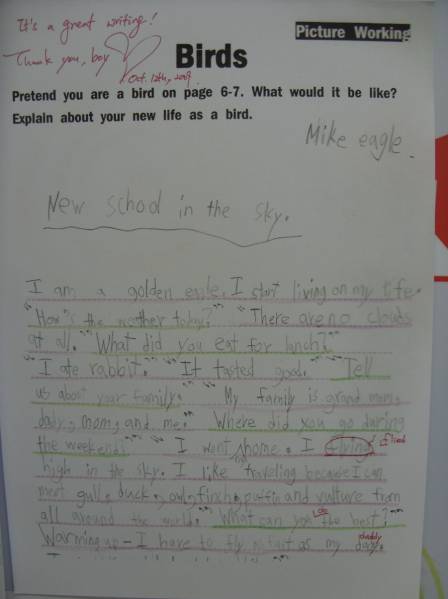 It's a great writing!
Picture Working
Thank you, boy
Oct. 12th, 2009
Birds
Pretend you are a bird on page 6-7. What would it be like?
Explain about your new life as a bird.
Mike eagle.
New school in the sky.
I am a golden eagle. I start living on my life.
"How's the weather today?" "There are no clouds
at all." "What did you eat for lunch?"
"I ate rabbit." "It tasted good." "Tell
us about your family." "My family is grand mom,
dady, mom, and me." "Where did you go during
the weekend?" "I went home. I flying
high in the sky. I like traveling because I can
meet gull, duck, owl, finch, puffin and vulture from
all around the world." "What can you do the best?"
Warming up - I have to fly as fast as my daddy.